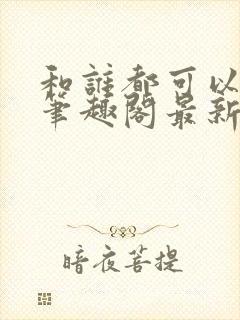 和誰都可以
筆趣閣最新
暗夜菩提